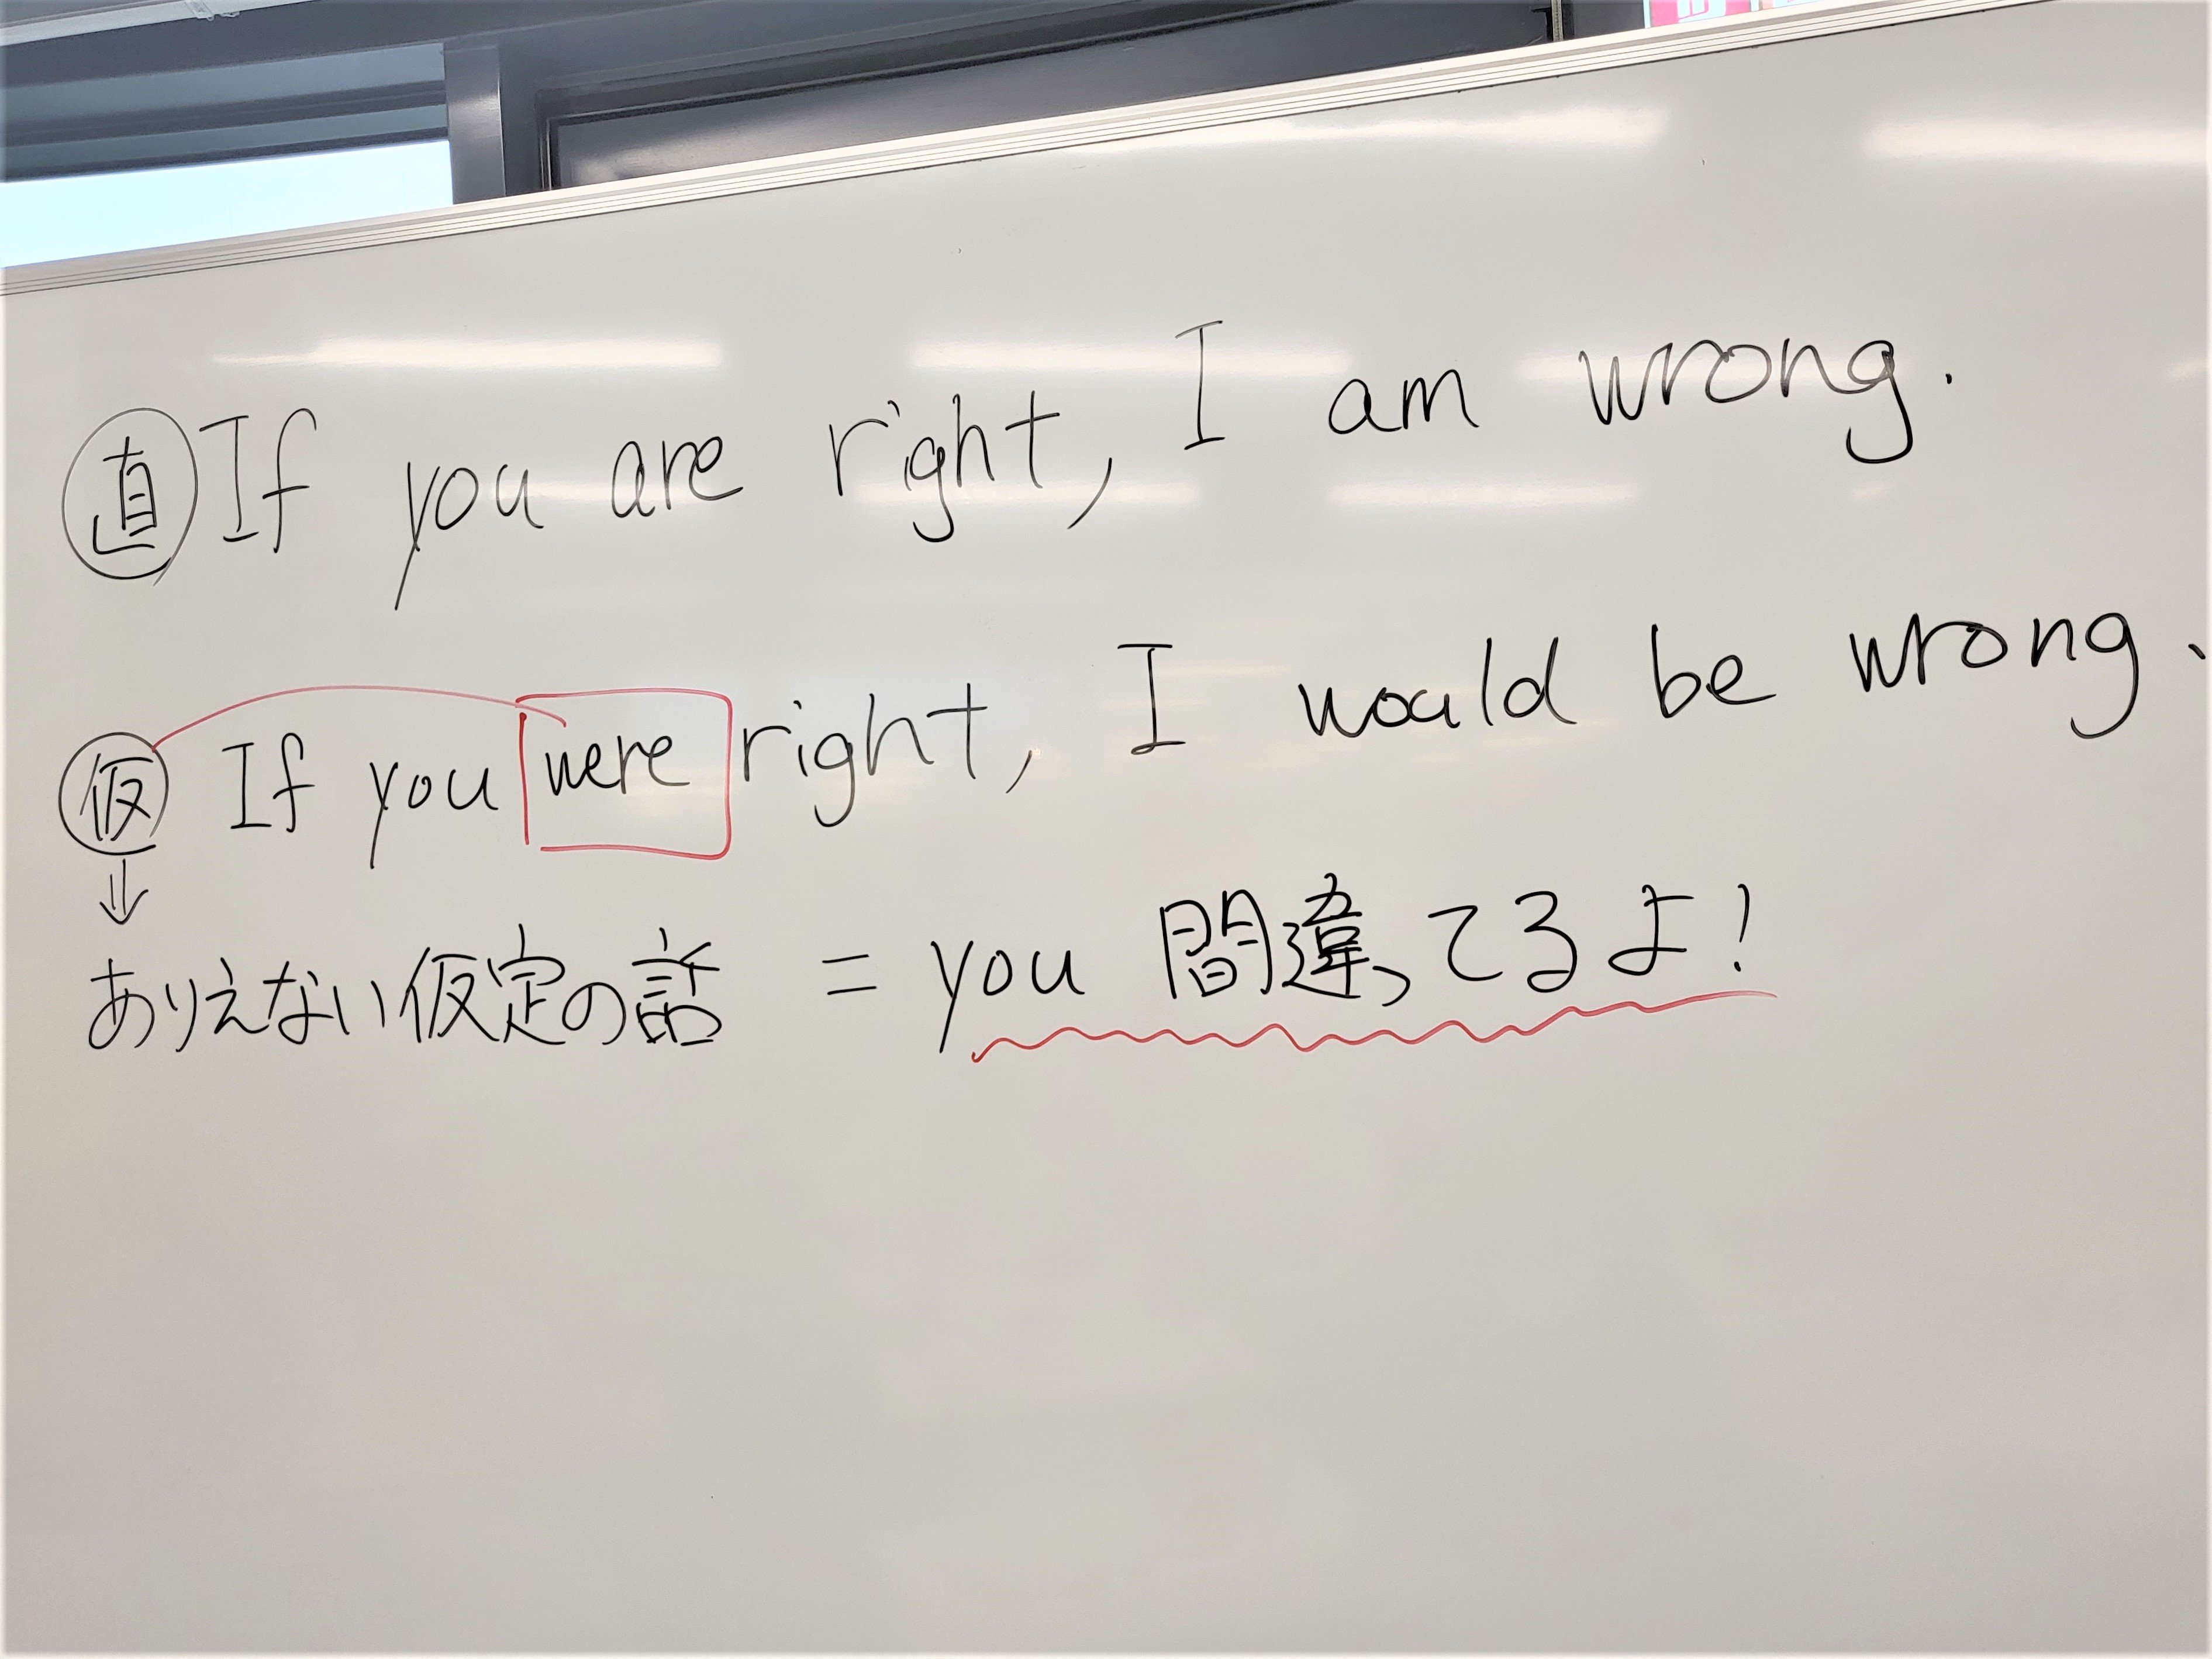 直 If you are right, I am wrong.
仮 If you were right, I would be wrong.
↓
ありえない仮定の話 = you 間違ってるよ!